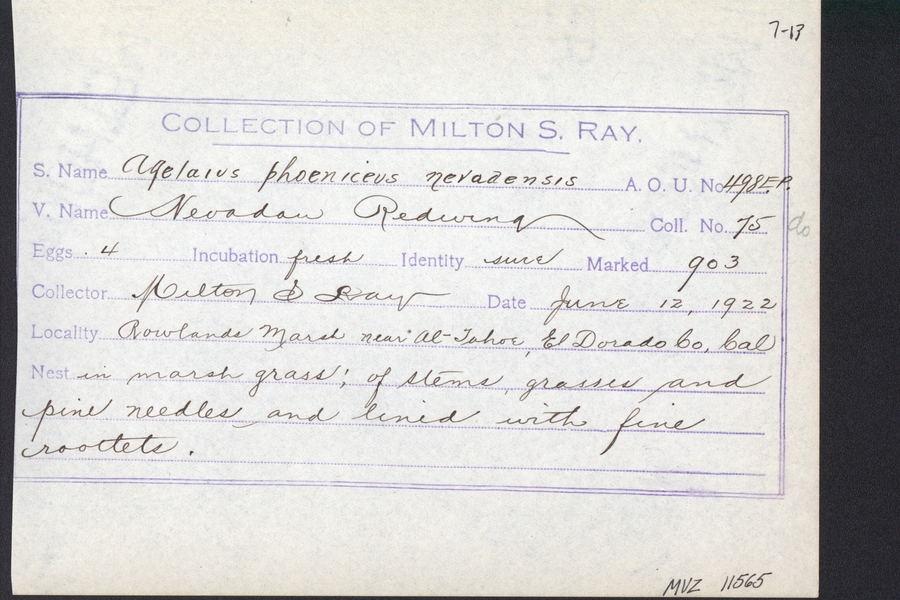 7-13
COLLECTION OF MILTON S. RAY.
S. Name Agelaius phoeniceus nevadensis A. O. U. No. 498
V. Name Nevadan Redwing Coll. No. 75 do
Eggs 4 Incubation fresh Identity sure Marked 903
Collector Milton S Ray Date June 12, 1922
Locality Rowlands Marsh near Al-Tahoe, El Dorado Co, Cal
Nest in marsh grass; of stems, grasses and
pine needles and lined with fine
rootlets.
MVZ 11565